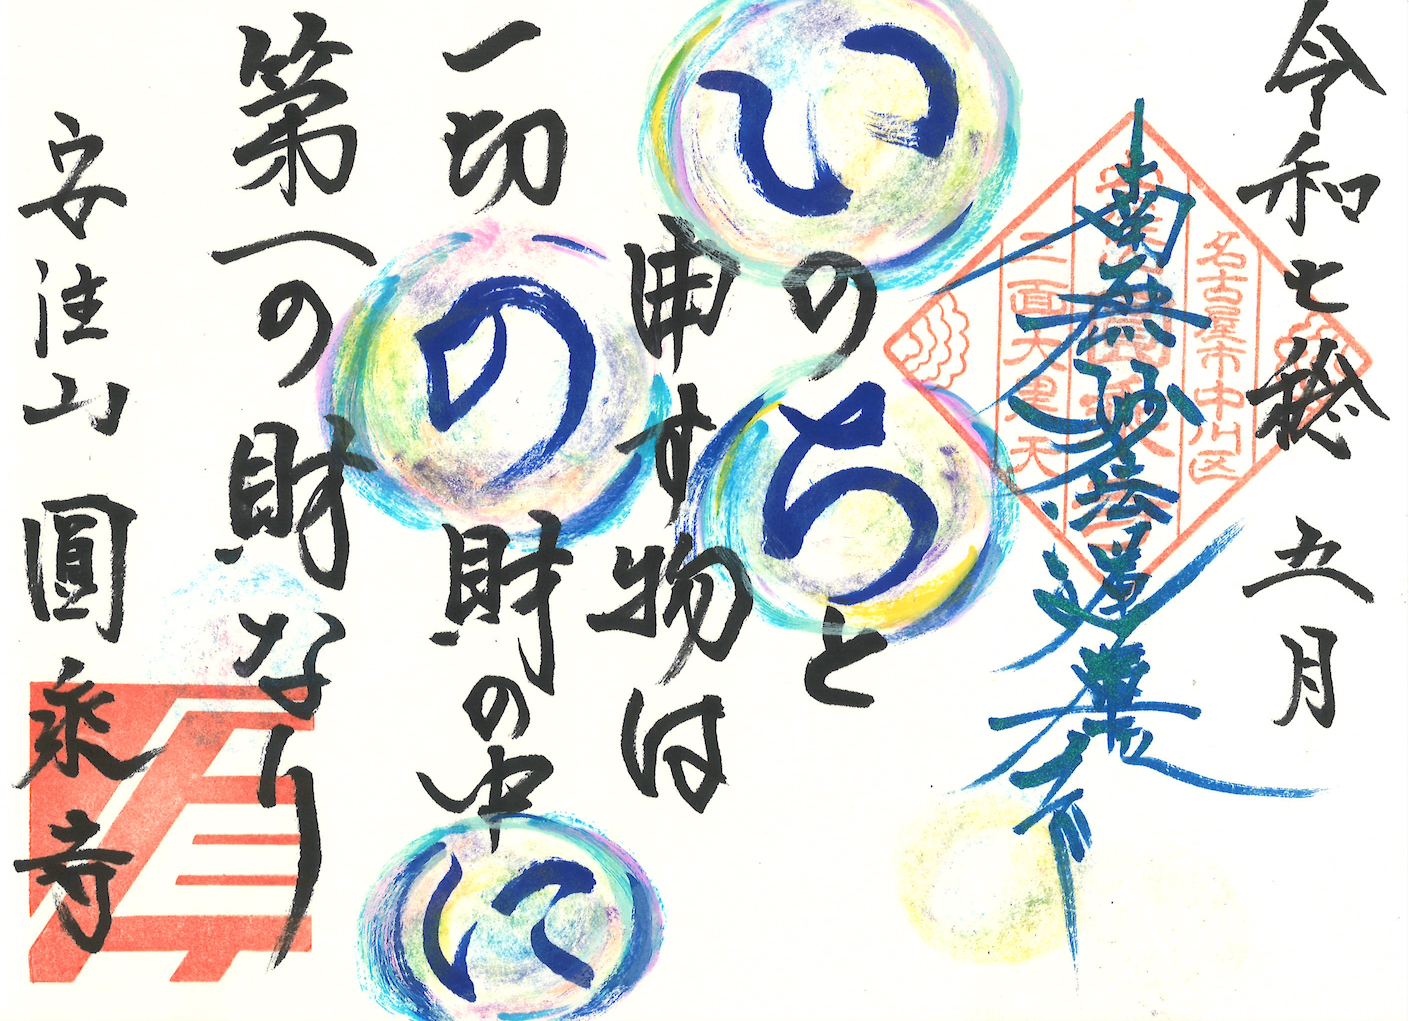 令和七稔 五月
南無妙法蓮華経
名古屋市中川区
三面大黒天
いのちと
申す物は
一切の財の中に
第一の財なり
安 山 圓 寺